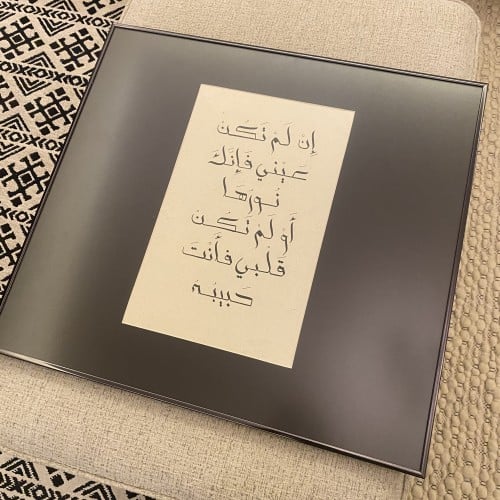 إِن لَم تَكُن
عَيْني فَإِنَّكَ
نُورَهَا
أَوْ لَم تَكُن
قَلْبي فَأَنتَ
حَبِيبُه